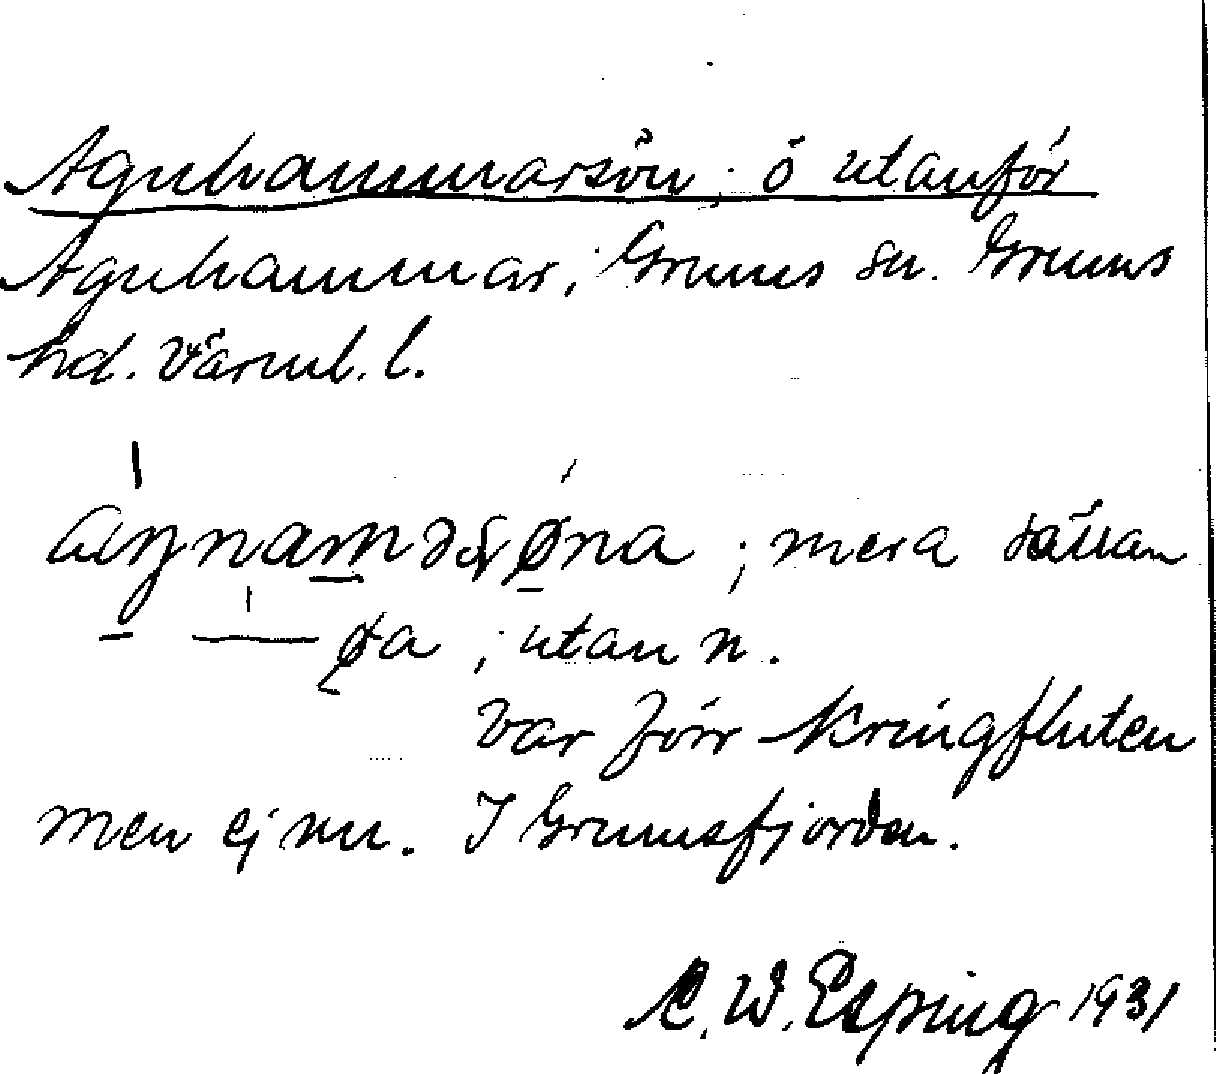 Agnhammarsön; ö utanför
Agnhammar, Grums sn. Grums
hd. Värml. l.
; mera sällan
; utan n.
Var förr kringfluten
men ej nu. I Grumsfjorden.
C. W. Esping 1931